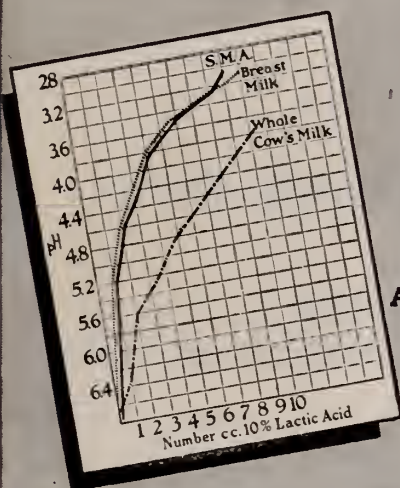 S.M.A.
Breast
Milk
Whole
Cow's Milk
2.8
3.2
3.6
4.0
4.4
pH
4.8
5.2
5.6
6.0
6.4
1 2 3 4 5 6 7 8 9 10
Number cc. 10% Lactic Acid
A